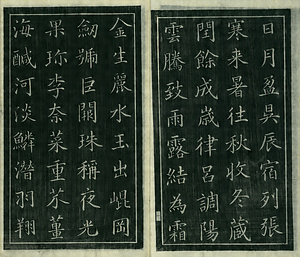 日月盈昃辰宿列張
寒来暑往秋收冬藏
閏餘成歲律呂調陽
雲騰致雨露結為霜
金生麗水玉出崐岡
劒號巨闕珠稱夜光
果珎李柰菜重芥薑
海醎河淡鱗潛羽翔